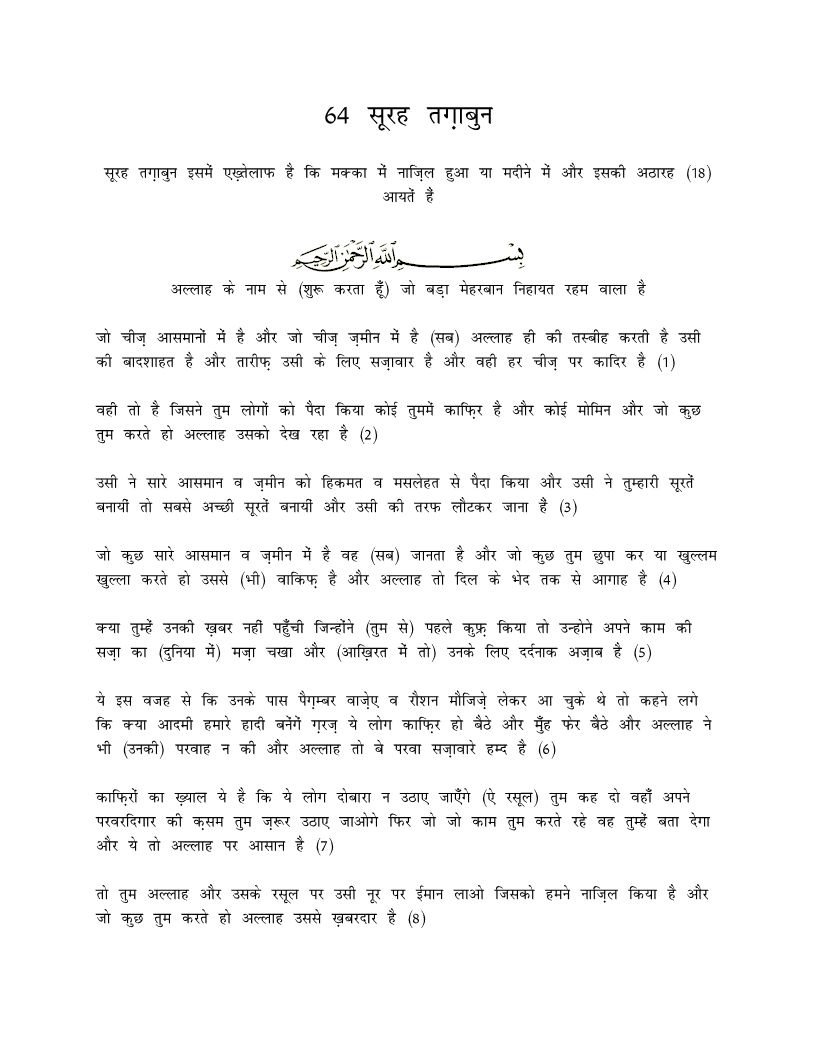 64 सूरह तग़ाबुन
सूरह तग़ाबुन इसमें एख़्तेलाफ है कि मक्का में नाज़िल हुआ या मदीने में और इसकी अठारह (18)
आयतें हैं
بِسْمِ اللَّهِ الرَّحْمَٰنِ الرَّحِيمِ
अल्लाह के नाम से (शुरू करता हूँ) जो बड़ा मेहरबान निहायत रहम वाला है
जो चीज़ आसमानों में है और जो चीज़ ज़मीन में है (सब) अल्लाह ही की तस्बीह करती है उसी
की बादशाहत है और तारीफ़ उसी के लिए सज़ावार है और वही हर चीज़ पर कादिर है (1)
वही तो है जिसने तुम लोगों को पैदा किया कोई तुममें काफ़िर है और कोई मोमिन और जो कुछ
तुम करते हो अल्लाह उसको देख रहा है (2)
उसी ने सारे आसमान व ज़मीन को हिकमत व मसलेहत से पैदा किया और उसी ने तुम्हारी सूरतें
बनायीं तो सबसे अच्छी सूरतें बनायीं और उसी की तरफ लौटकर जाना हैं (3)
जो कुछ सारे आसमान व ज़मीन में है वह (सब) जानता है और जो कुछ तुम छुपा कर या खुल्लम
खुल्ला करते हो उससे (भी) वाकिफ़ है और अल्लाह तो दिल के भेद तक से आगाह है (4)
क्या तुम्हें उनकी ख़बर नहीं पहुँची जिन्होंने (तुम से) पहले कुफ़्र किया तो उन्होने अपने काम की
सज़ा का (दुनिया में) मज़ा चखा और (आख़िरत में तो) उनके लिए दर्दनाक अज़ाब है (5)
ये इस वजह से कि उनके पास पैग़म्बर वाज़ेए व रौशन मौजिज़े लेकर आ चुके थे तो कहने लगे
कि क्या आदमी हमारे हादी बनेंगें ग़रज़ ये लोग काफ़िर हो बैठे और मुँह फेर बैठे और अल्लाह ने
भी (उनकी) परवाह न की और अल्लाह तो बे परवा सज़ावारे हम्द है (6)
काफ़िरों का ख़्याल ये है कि ये लोग दोबारा न उठाए जाएँगे (ऐ रसूल) तुम कह दो वहाँ अपने
परवरदिगार की क़सम तुम ज़रूर उठाए जाओगे फिर जो जो काम तुम करते रहे वह तुम्हें बता देगा
और ये तो अल्लाह पर आसान है (7)
तो तुम अल्लाह और उसके रसूल पर उसी नूर पर ईमान लाओ जिसको हमने नाज़िल किया है और
जो कुछ तुम करते हो अल्लाह उससे ख़बरदार है (8)